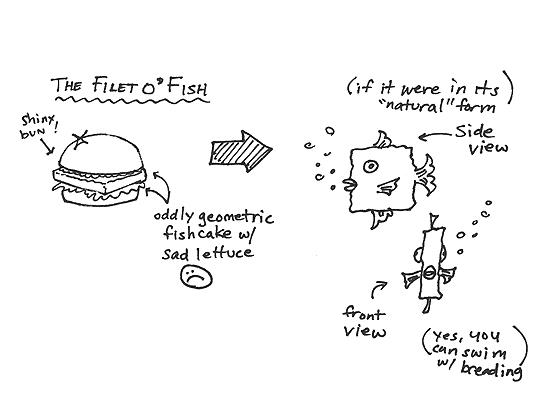 THE FILET O' FISH
shiny
bun!
oddly geometric
fishcake w/
sad lettuce
(if it were in its
"natural" form)
side
view
front
view
(yes, you
can swim
w/ breading)